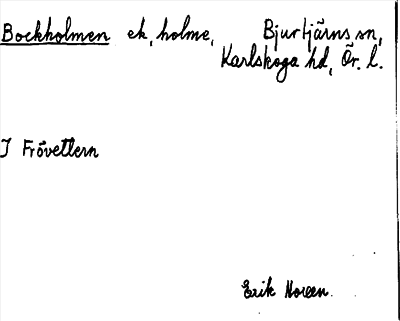 Bockholmen ek, holme, Bjurtjärns sn,
Karlskoga hd, Ör. l.
I Frövettern
Erik Noreen.